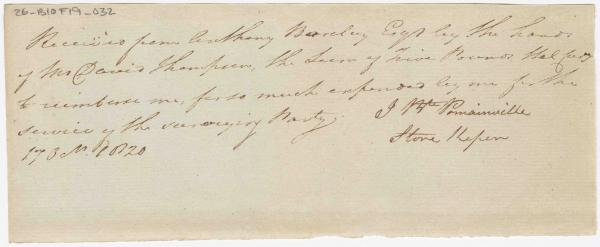 26-B10F19-032
Received from Anthony Barclay Esqr by the hands
of Mr David Thompson, the Sum of Five Pounds Hal Cory
to reimburse me, for so much expended by me for the
service of the surveying Party;
J Bte Pomainville
17 3 1820
Store Keeper